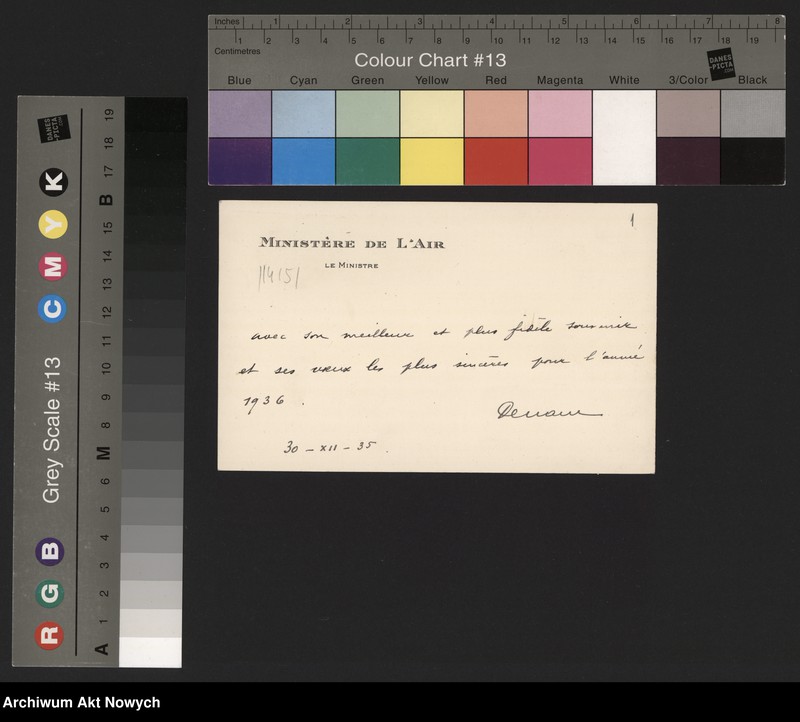 Inches 1 2 3 4 5 6 7 8
1 2 3 4 5 6 7 8 9 10 11 12 13 14 15 16 17 18 19
Centimetres
Colour Chart #13
DANES
-PICTA
.COM
Blue Cyan Green Yellow Red Magenta White 3/Color Black
DANES
-PICTA
.COM
K
Y
M
C
Grey Scale #13
B
G
R
A 1 2 3 4 5 6 M 8 9 10 11 12 13 14 15 B 17 18 19
1
MINISTÈRE DE L'AIR
LE MINISTRE
avec son meilleur et plus fidèle souvenir
et ses vœux les plus sincères pour l'année
1936.
Denain
30 - XII - 35.
Archiwum Akt Nowych